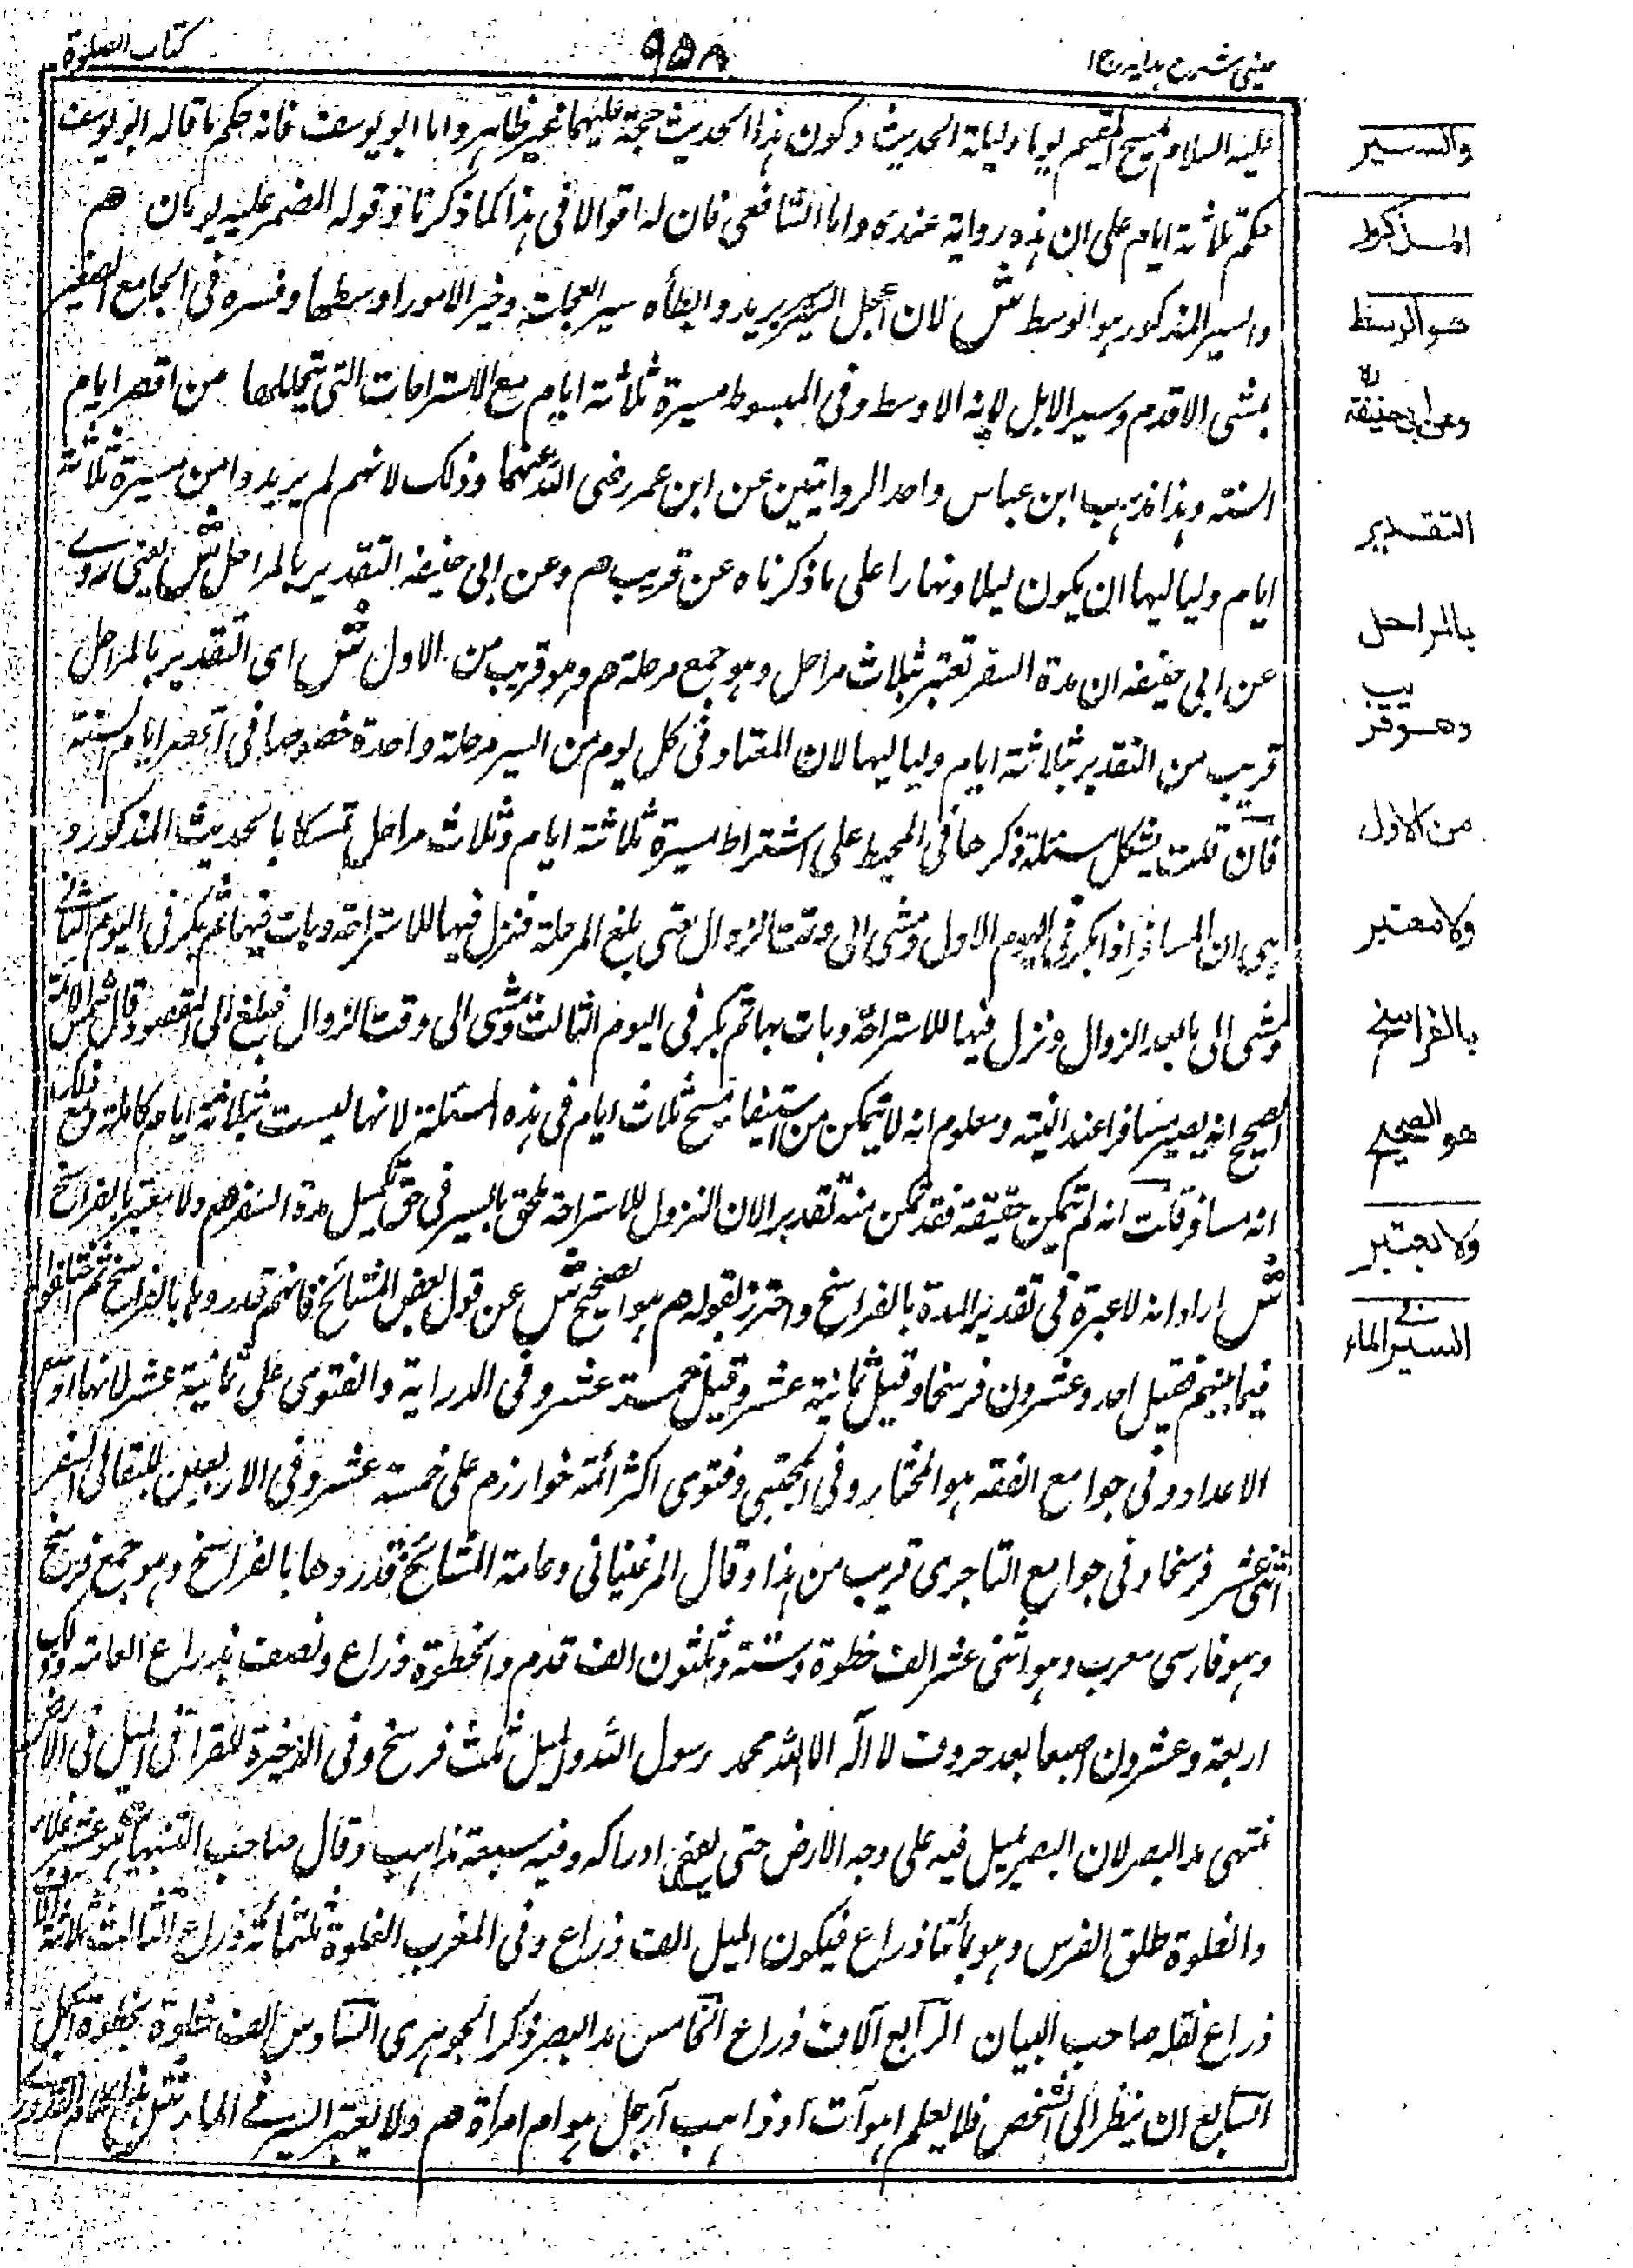 عينى شرح هدايه ج١
٩٥٨
كتاب الصلوة
عليه السلام يمسح المقيم يوما وليلة الحديث وكون هذا الحديث حجة عليهما غير ظاهر واما ابو يوسف فانه حكم ما قاله ابو يوسف
حكم ثلاثة ايام على ان هذه رواية عنده واما الشافعى فان له اقوالا فى هذا كما ذكرنا وقوله المضمر عليه يومان هم
والسير المذكور هو الوسط ش لان اعجل السير بريد وابطأه سير العجلة وخير الامور اوسطها وفسره فى الجامع الصغير
بمشى الاقدم وسير الابل لانه الاوسط وفى المبسوط مسيرة ثلاثة ايام مع الاستراحات التى تتخللها من اقصر ايام
السنة وهذا مذهب ابن عباس واحد الروايتين عن ابن عمر رضى الله عنهما وذلك لانهم لم يريدوا من مسيرة ثلاثة
ايام ولياليها ان يكون ليلا ونهارا على ما ذكرناه عن قريب هم وعن ابى حنيفه التقدير بالمراحل ش يعنى روے
عن ابى حنيفه ان مدة السفر تعتبر بثلاث مراحل وهو جمع مرحلة هم وهو قريب من الاول ش اى التقدير بالمراحل
قريب من التقدير بثلاثة ايام ولياليها لان المعتاد فى كل يوم من السير مرحلة واحدة خصوصا فى اقصر ايام السنة
فان قلت يشكل مسئلة ذكرها فى المحيط على اشتراط مسيرة ثلاثة ايام وثلاث مراحل تمسكا بالحديث المذكور و
هى ان المسافر اذا بكر فى اليوم الاول ومشى الى وقت الزوال حتى بلغ المرحلة فنزل فيها للاستراحة وبات فيها ثم بكر فى اليوم الثانے
ومشى الى ما بعد الزوال ونزل فيها للاستراحة وبات بها ثم بكر فى اليوم الثالث ومشى الى وقت الزوال فبلغ الى المقصد وقال شمس الائمة
الصحيح انه يصير مسافرا عند النية ومعلوم انه لا يتمكن من استيفاء مسح ثلاث ايام فى هذه المسئلة لانها ليست بثلاثة ايام كاملة ومع ذلك
انه مسافر قلت انه لم يتمكن حقيقة فقد تمكن منه تقديرا لان النزول للاستراحة ملحق بالسير فى حق تكميل مدة السفر هم ولا معتبر بالفراسخ
ش اراد انه لا عبرة فى تقدير المدة بالفراسخ واحترز بقوله هم هو الصحيح ش عن قول بعض المشائخ فانهم قدروها بالفراسخ ثم اختلفوا
فيما بينهم فقيل احد وعشرون فرسخا وقيل ثمانية عشر وقيل خمسة عشر وفى الدراية والفتوى على ثمانية عشر لانها اوسط
الاعداد وفى جوامع الفقه هو المختار وفى المجتبى وفتوى اكثر ائمة خوارزم على خمسة عشر وفى الاربعين للبقالى السفر
اثنى عشر فرسخا وفى جوامع التاجرى قريب من هذا وقال المرغينانى وعامة المشائخ قدروها بالفراسخ وهو جمع فرسخ
وهو فارسى معرب وهو اثنى عشر الف خطوة وستة وثلثون الف قدم والخطوة ذراع ونصف بذراع العامة وهو
اربعة وعشرون اصبعا بعدد حروف لا اله الا الله محمد رسول الله والميل ثلث فرسخ وفى الذخيرة للقرافى الميل فى الارض
منتهى مد البصر لان البصر يميل فيه على وجه الارض حتى يفنى ادراكه وفيه سبعة مذاهب وقال صاحب التنبيهات هو عشر غلاء
والغلوة طلق الفرس وهو مأتا ذراع فيكون الميل الف ذراع وفى المغرب الغلوة ثلثمائة ذراع الثالث ثلاثة آلاف
ذراع نقله صاحب البيان الرابع آلاف ذراع الخامس مد البصر ذكر الجوهرى السادس الف خطوة بخطوة الجمل
السابع ان ينظر الى الشخص فلا يعلم اهو آت او ذاهب أرجل هو ام امرأة هم ولا يعتبر السير فے الماء ش
والسير
المذكور
هو الوسط
وعن ابى حنيفة
التقدير
بالمراحل
وهو قريب
من الاول
ولا معتبر
بالفراسخ
هو الصحيح
ولا يعتبر
السير فے الماء